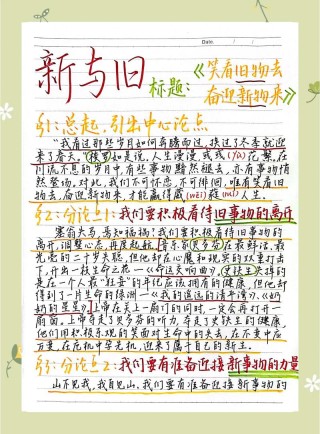 Date: / /
新与旧
标题:
《笑看旧物去
奋迎新物来》
引1:总起,引出中心论点
"我看过那些岁月如何奔腾而过,挨过了冬季就迎
来了春天。"梭罗如是说,人生漫漫,或或(yù)花繁,在
川流不息的岁月中,有些事物黯然褪去,亦有事物悄
然登场,对此,我们不可怀恋,不可徘徊,唯有笑看旧
物去,奋迎新物来,才能赢得葳(wēi)蕤(ruí)人生。
引2:分论点1:我们要积极看待旧事物的离开
塞翁失马,焉知祸福!我们要积极看待旧事物的
离开,调整心态,再度起航。音乐家贝多芬在最鲜活、最
光亮的二十岁失聪,但他却在心魔和现实的双重打击
下,开出一枝生命之花—《命运交响曲》。史铁生失掉的
是在一个人最"狂妄"的年纪应该拥有的健康,但他却
得到了一片生命的绿洲—《我的遥远的清平湾》、《奶
奶的星星》。上帝在关上一扇门的同时,一定会再打开一
扇窗。上帝夺走了贝多芬的听力,夺走了史铁生的健康,
他们用积极乐观的笑面对生命中的失去,在不幸中后
万幸,在危机中守先机,迎来了属于自己的新生。
引3:分论点2:我们要有准备迎接新事物的力量
山不见我,我自见山。我们要有准备迎接新事物的